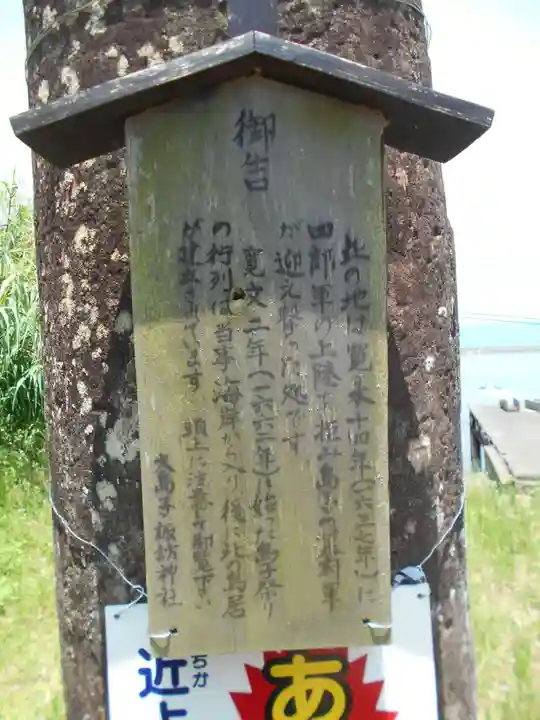 御告
此の地は寛永十四年(一六三七年)に
四郎軍の上陸を拒み島子の
軍
が迎え撃った処です
寛文二年(一六六二年)に始った島子祭り
の行列は当寺海岸から入り後に此の鳥居
が建立されています 頭上に注意し御覧下さい
大島子諏訪神社
ちか
近
あ